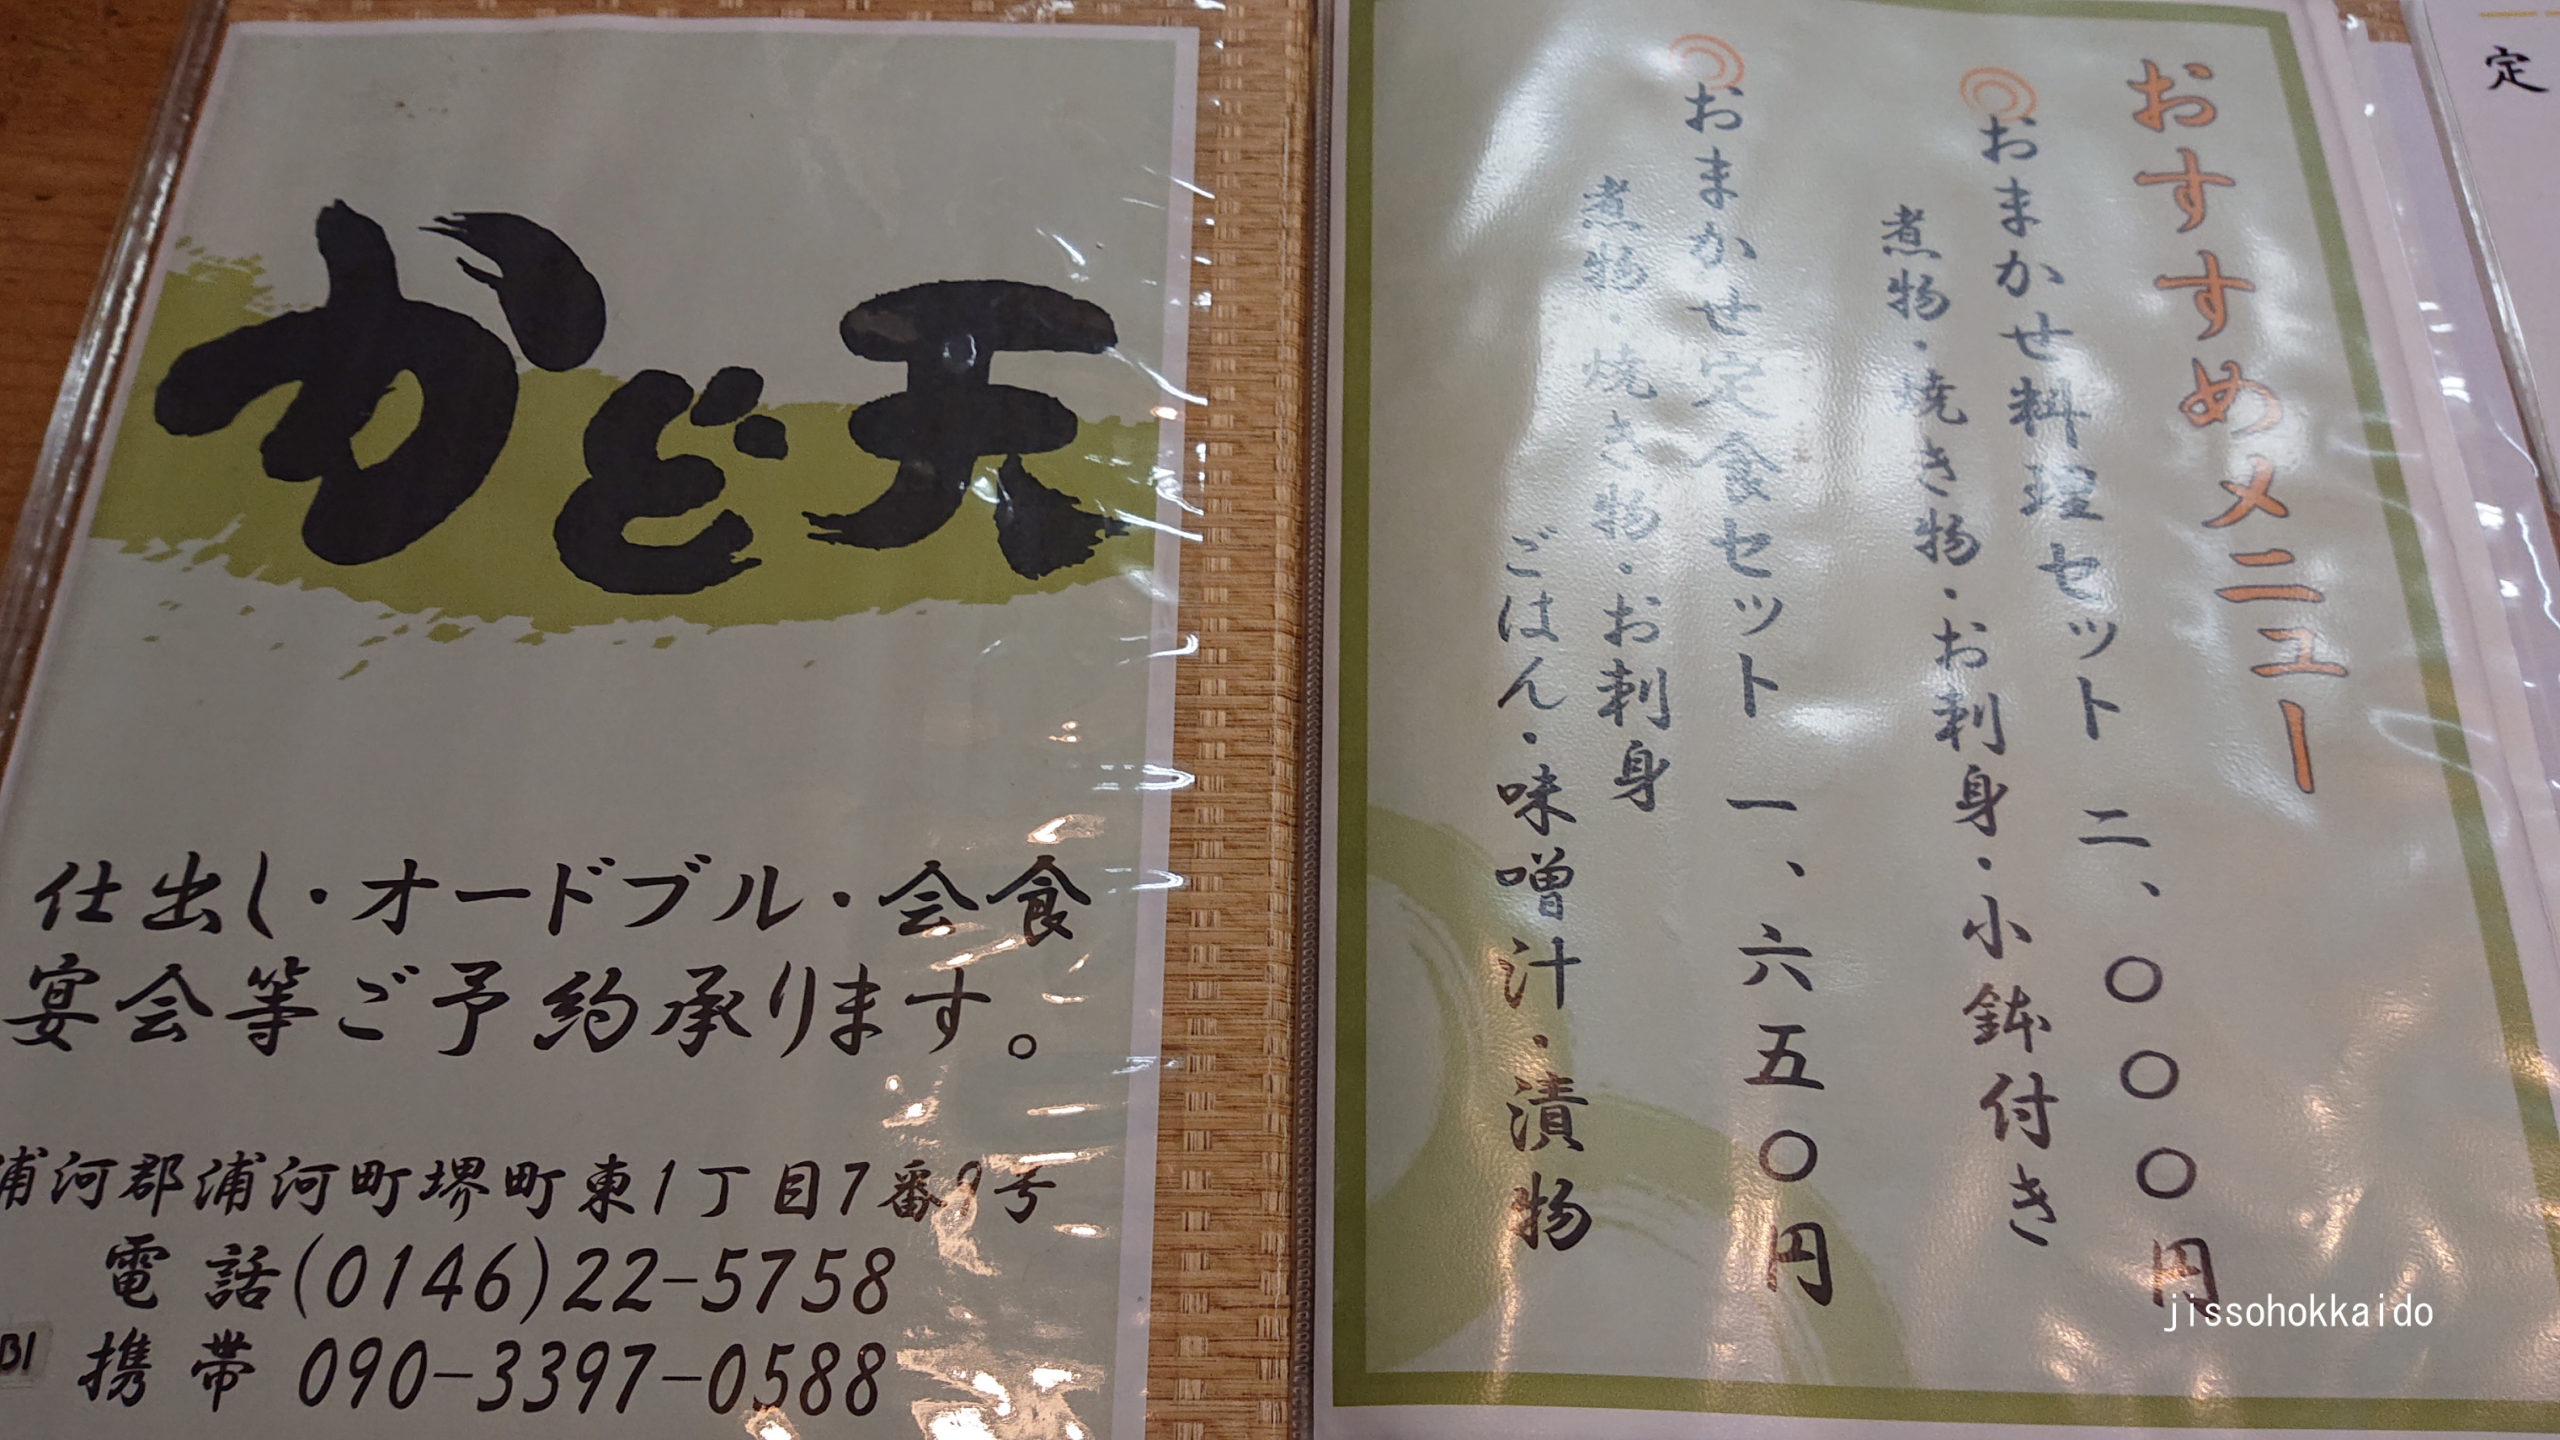 かど天
仕出し・オードブル・会食
宴会等ご予約承ります。
浦河郡浦河町堺町東1丁目7番9号
電話(0146)22-5758
携帯 090-3397-0588
B1
おすすめメニュー
おまかせ料理セット 二、〇〇〇円
煮物・焼き物・お刺身・小鉢付き
おまかせ定食セット 一、六五〇円
煮物・焼き物・お刺身
ごはん・味噌汁・漬物
定
jissohokkaido